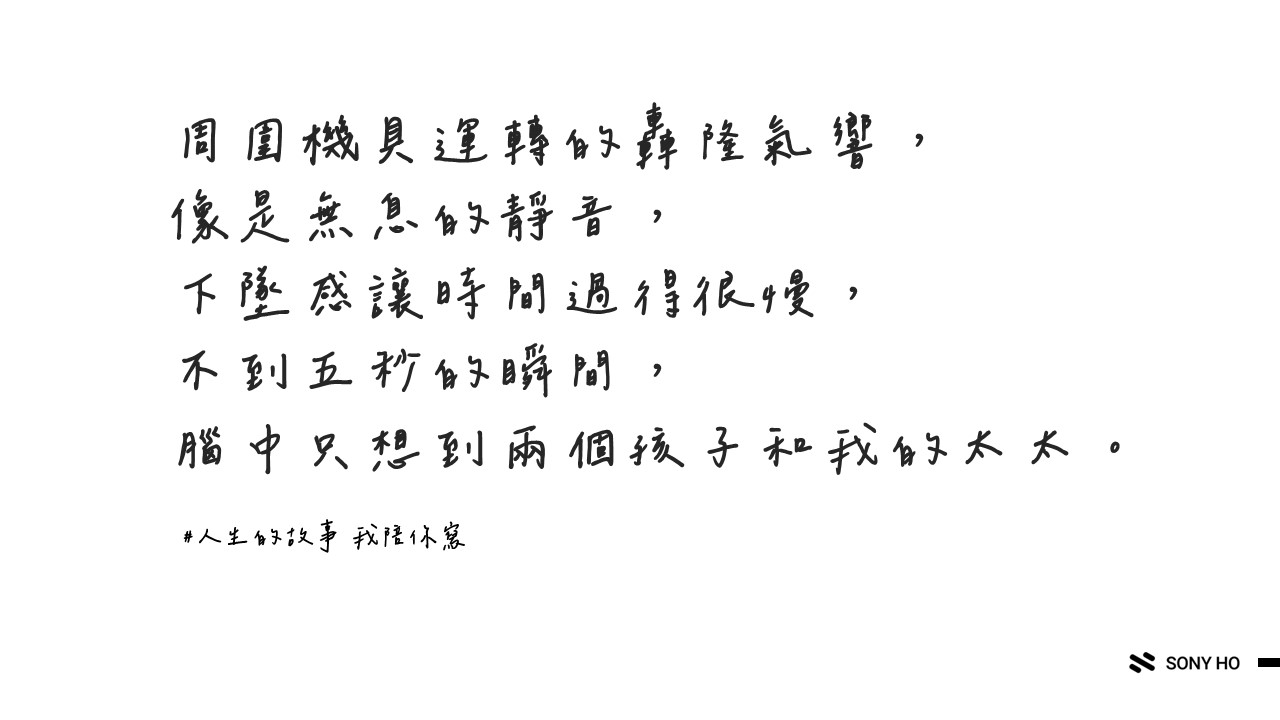 周圍機具運轉的轟隆氣響，
像是無息的靜音，
下墜感讓時間過得很慢，
不到五秒的瞬間，
腦中只想到兩個孩子和我的太太。
#人生的故事 我陪你寫
SONY HO